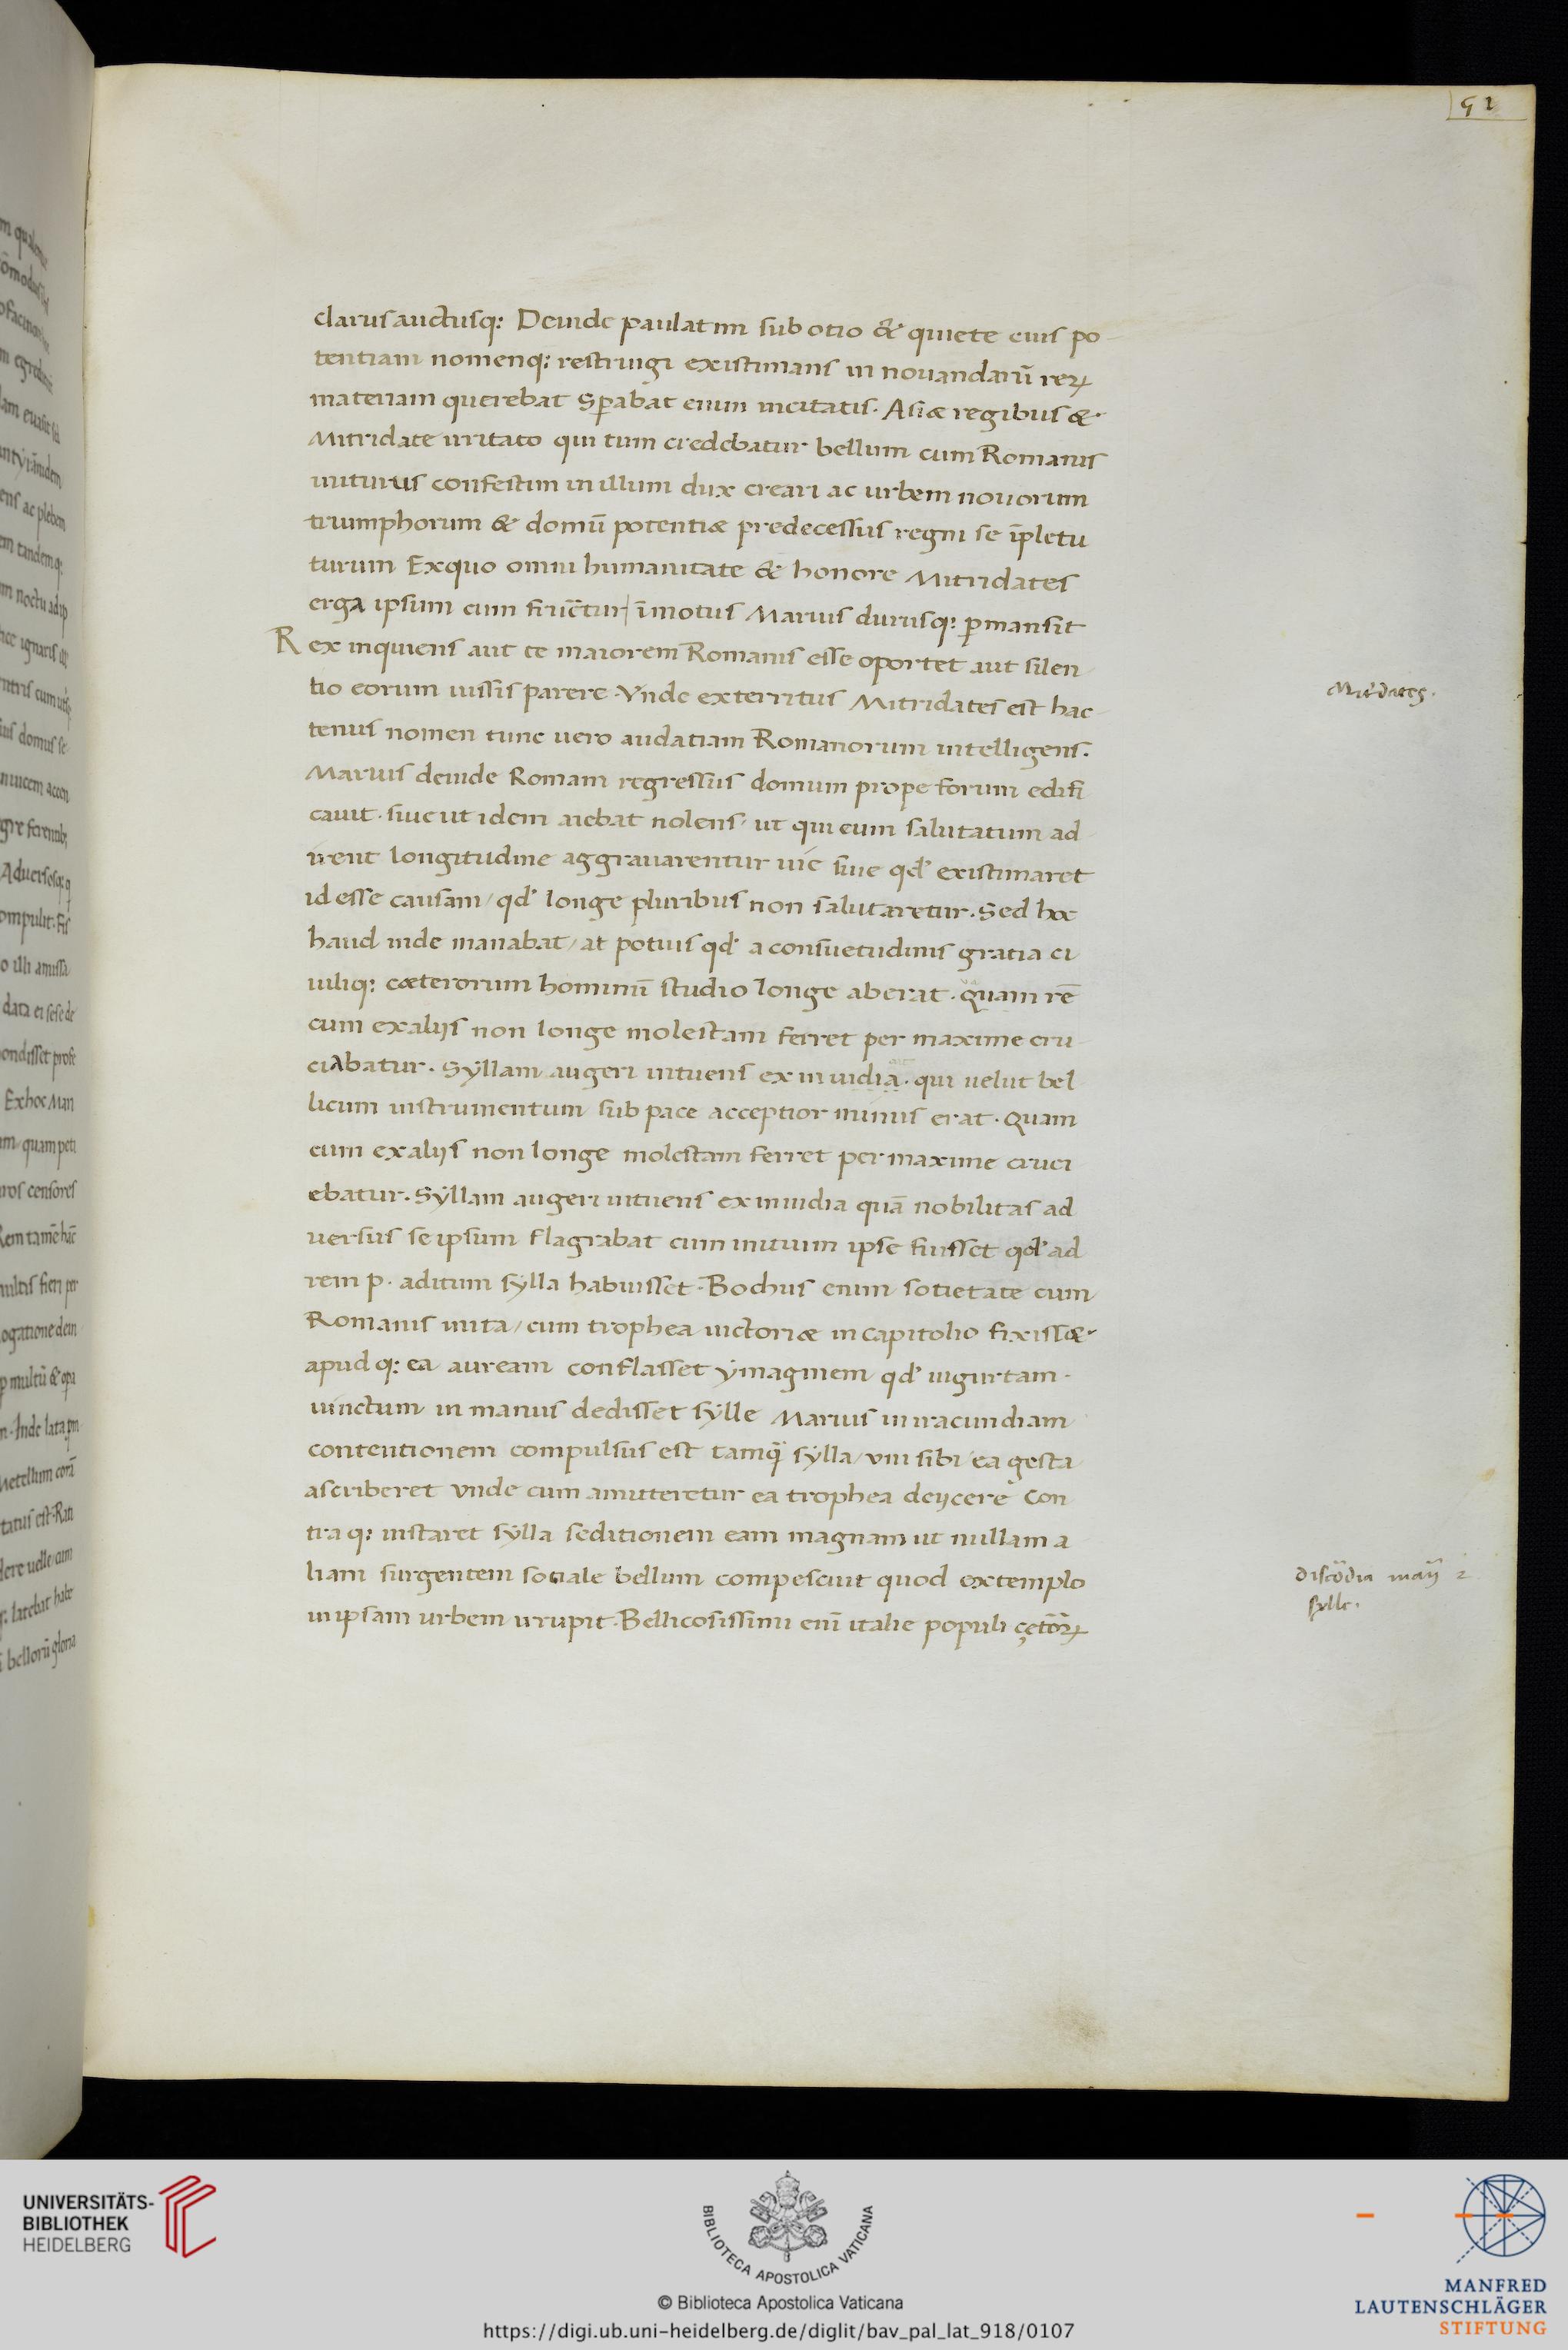 52
clarus auctusq: Deinde paulatim sub otio & quiete eius po-
tentiam nomenq: restringi existimans in nouandarū reꝝ
materiam querebat Sperabat enim incitatis. Asiæ regibus &
Mitridate irritato qui tum credebatur bellum cum Romanis
initurus confestim in illum dux creari ac urbem nouorum
triumphorum & domū potentiæ predecessus regni se īpletu
turum Exquo omni humanitate & honore Mitridates
erga ipsum cum īmotus Marius durusq: ꝑmansit
Rex inquiens aut te maiorem Romanis esse oportet aut silen
tio eorum iussis parere. Vnde exterritus Mitridates est hac-
tenus nomen tunc uero audatiam Romanorum intelligens.
Marius deinde Romam regressus domum prope forum edifi
cauit. siue ut idem aiebat nolens, ut qui eum salutatum ad
irent longitudine aggrauarentur uie siue qd' existimaret
id esse causam, qd' longe pluribus non salutaretur. Sed hoc
haud inde manabat, at potuis qd' a consuetudinis gratia ci
uiliq: cæterorum hominū studio longe aberat. Quam rē
cum exalijs non longe molestam ferret per maxime cru
ciabatur. Syllam augeri intuens ex inuidia. qui uelut bel
licum instrumentum sub pace acceptior minus erat. Quam
cum exalijs non longe molestam ferret per maxime cruci
ebatur. Syllam augeri intuens ex inuidia quā nobilitas ad
uersus se ipsum flagrabat cum initium ipse fuisset qd' ad
rem p. aditum sylla habuisset. Bochus enim sotietate cum
Romanis inita, cum trophea uictoriæ in capitolio fixiss&
apud q: ea auream conflasset ymaginem qd' iugurtam.
uinctum in manus dedisset sylle Marius in iracundiam
contentionem compulsus est tamq̃ sylla, uni sibi ea gesta
ascriberet Vnde cum anniteretur ea trophea deijcere Con
tra q: instaret sylla seditionem eam magnam ut nullam a
liam surgentem sotiale bellum compescuit quod extemplo
in ipsam urbem irrupit. Bellicosissimi enī italie populi
Mitridates.
discōdia
sylle.
UNIVERSITÄTS-
BIBLIOTHEK
HEIDELBERG
BIBLIOTECA APOSTOLICA VATICANA
© Biblioteca Apostolica Vaticana
https://digi.ub.uni-heidelberg.de/diglit/bav_pal_lat_918/0107
MANFRED
LAUTENSCHLÄGER
STIFTUNG